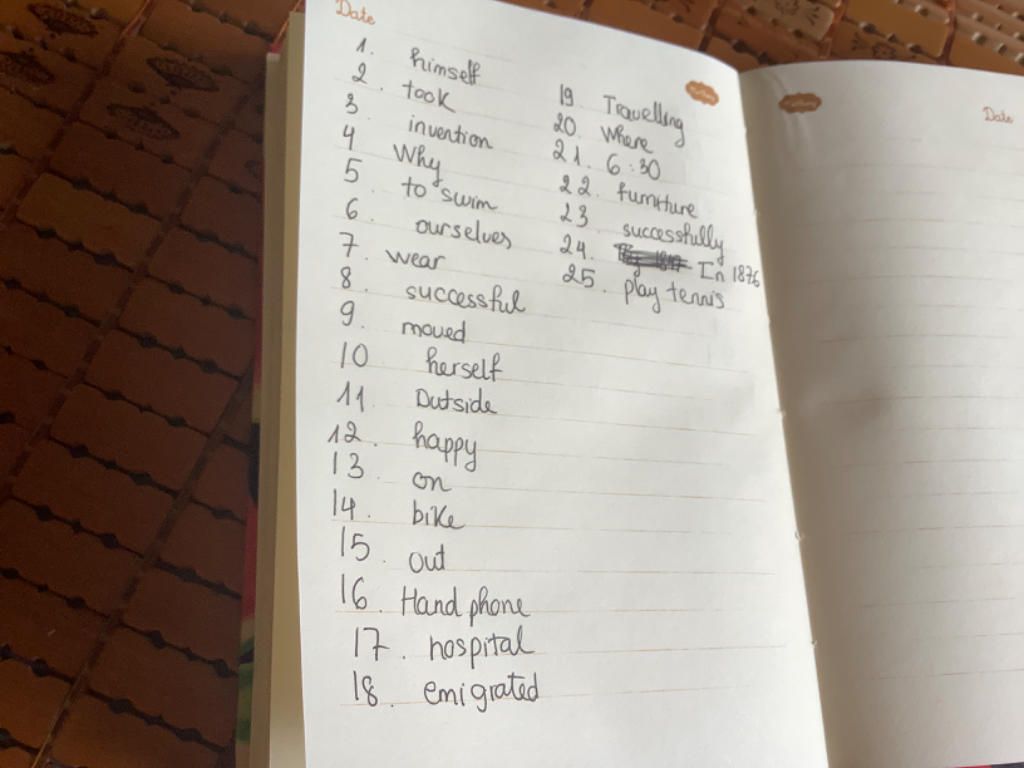 Date
1. himself
2. took
3 invention
4 Why
5. to swim
6. ourselves
7. wear
8. successful
9. moved
10 herself
11. Outside
12. happy
13. on
14. bike
15. out
16. Hand phone
17. hospital
18. emigrated
19. Travelling
20. Where
21. 6:30
22. furniture
23. successfully
24. In 1876
25. play tennis
Date